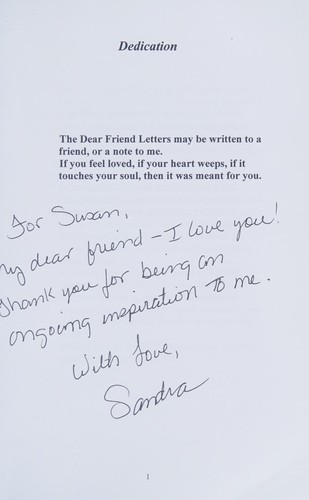 Dedication
The Dear Friend Letters may be written to a
friend, or a note to me.
If you feel loved, if your heart weeps, if it
touches your soul, then it was meant for you.
For Susan,
my dear friend - I love you!
Thank you for being an
ongoing inspiration to me.
With Love,
Sandra
1